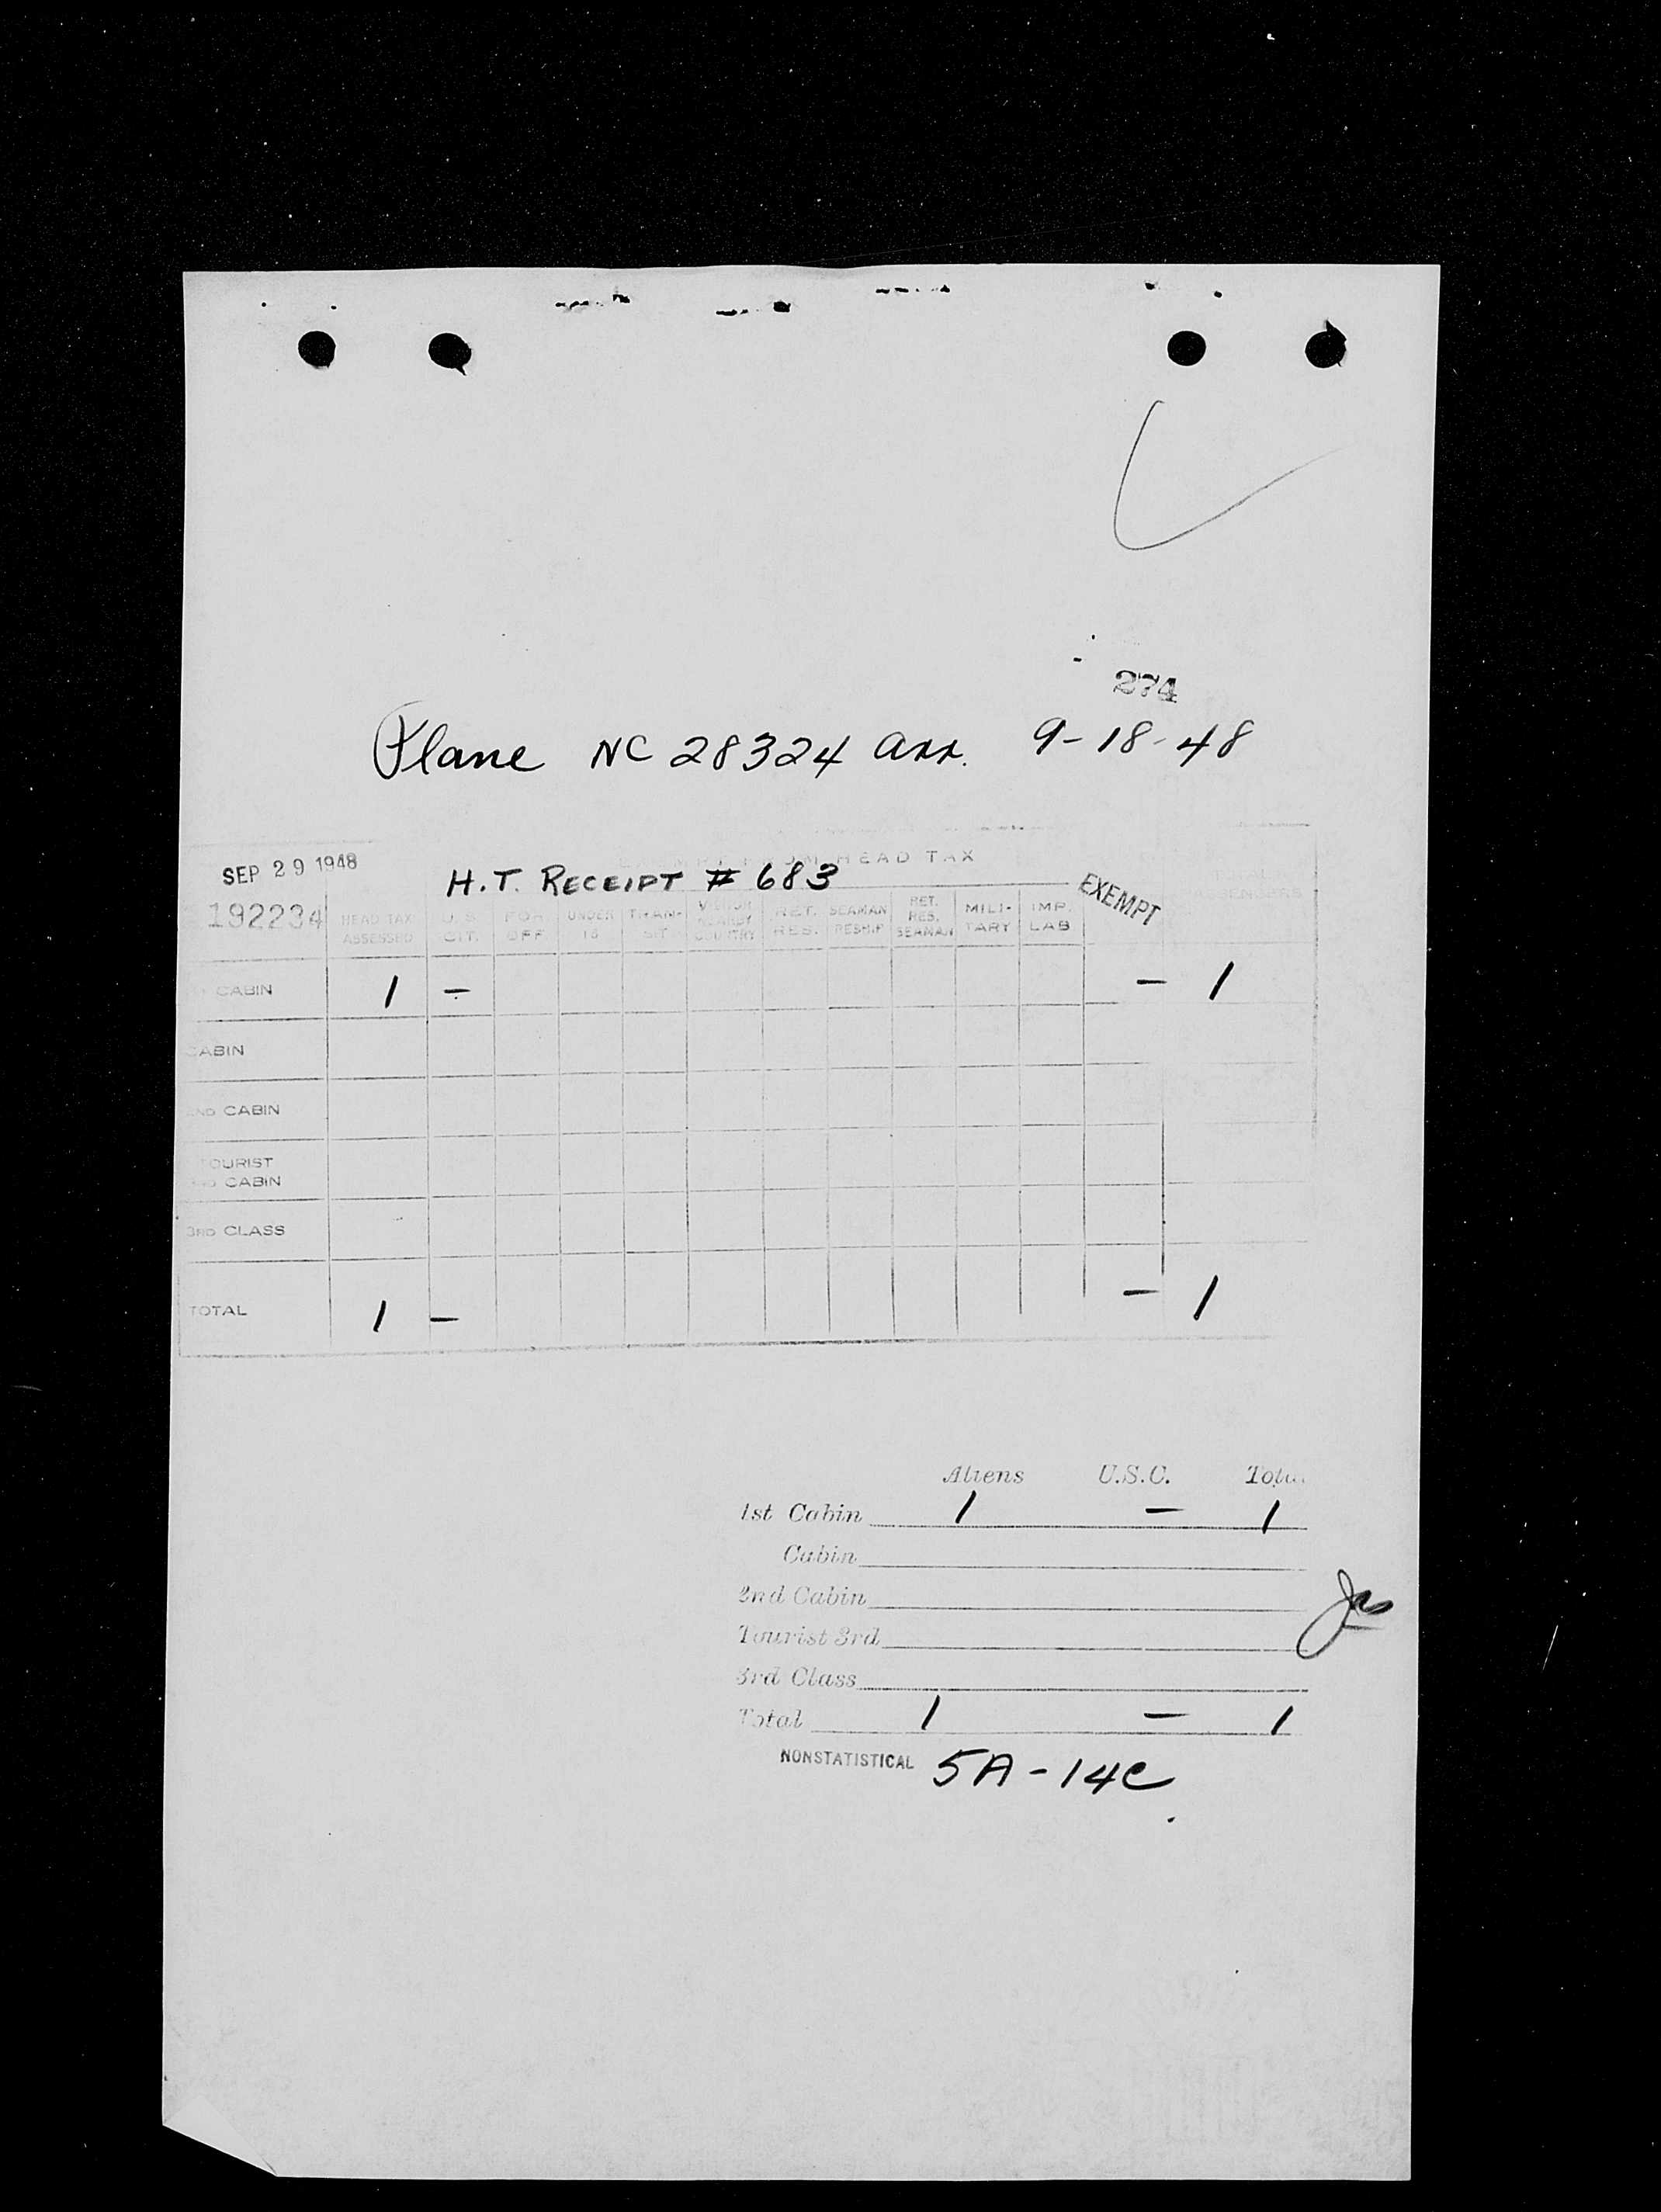 274
Plane NC 28324 arr. 9-18-48
SEP 29 1948
HEAD TAX
H.T. RECEIPT # 683
EXEMPT
192234
HEAD TAX ASSESSED
U.S. CIT.
FOR OFF
UNDER 16
TRAN-SIT
VISITOR NEARBY COUNTRY
RET. RES.
SEAMAN RESHIP
RET. RES. SEAMAN
MILI-TARY
IMP. LAB
CABIN 1 - - 1
CABIN
ND CABIN
TOURIST
CABIN
3RD CLASS
TOTAL 1 - - 1
Aliens U.S.C. Total
1st Cabin 1 - 1
Cabin
2nd Cabin
Tourist 3rd
3rd Class
Total 1 - 1
NONSTATISTICAL 5A-14C